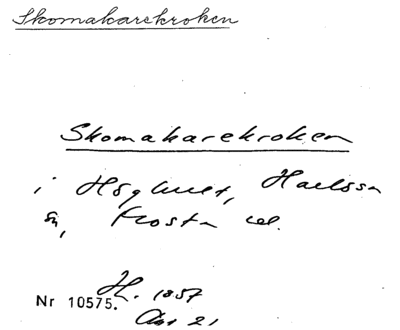 Skomakarekroken
Skomakarekroken
i Höghult, Hallssn
sn, Frosta
Nr 10575. H. 1857
21